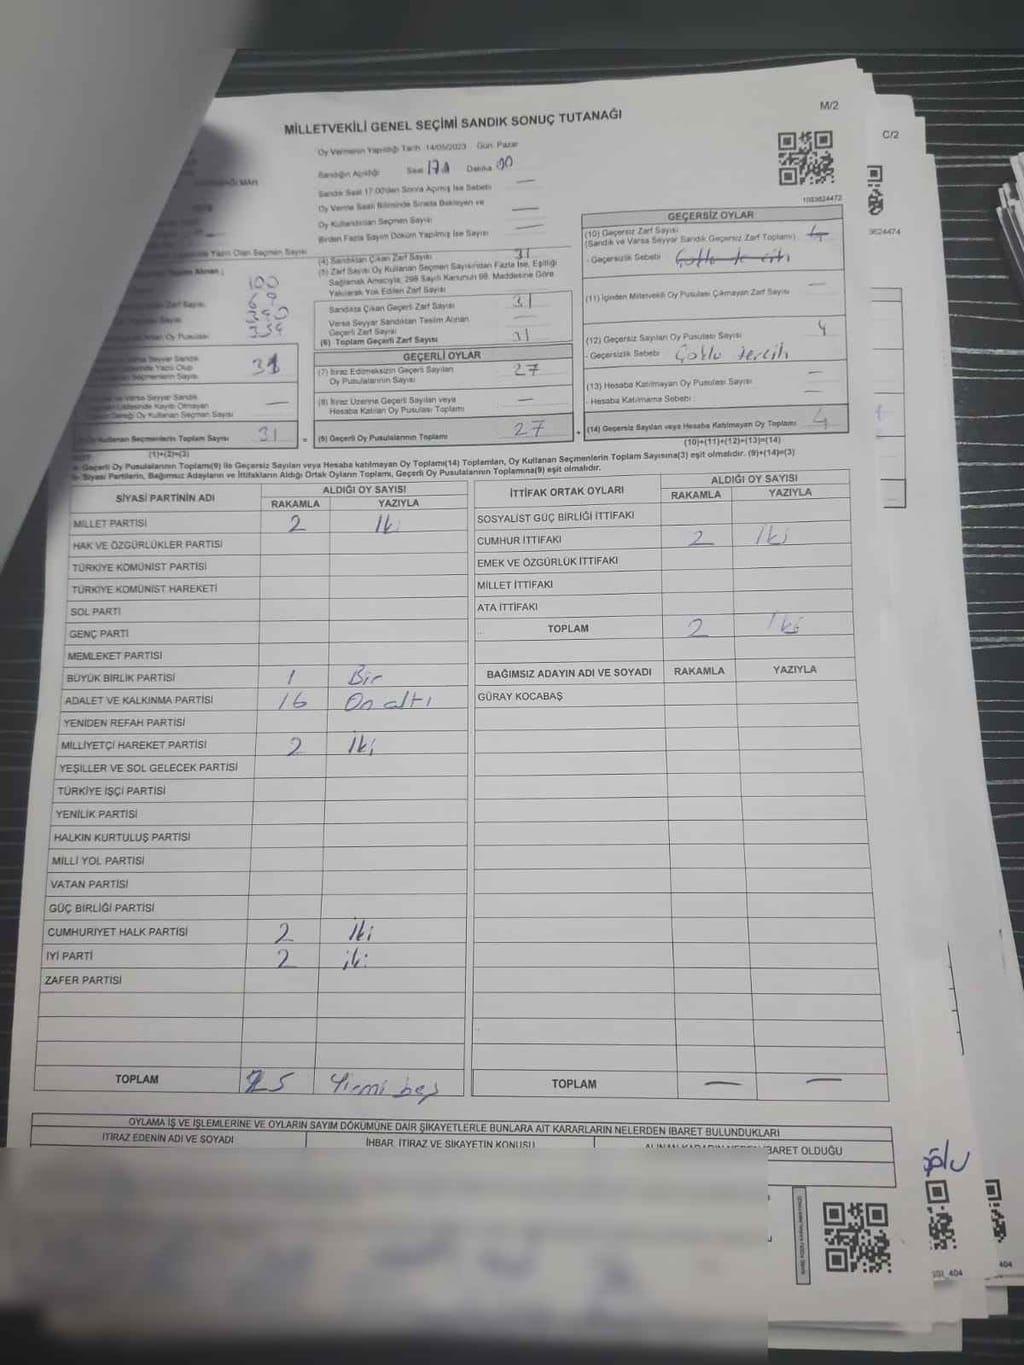 M/2
C/2
MİLLETVEKİLİ GENEL SEÇİMİ SANDIK SONUÇ TUTANAĞI
Oy Vermenin Yapıldığı Tarih 14/05/2023 Gün: Pazar
Sandığın Açıldığı Saat 17 Dakika 00
Sandık Saat 17:00'den Sonra Açılmış İse Sebebi —
Oy Verme Saati Bitiminde Sırada Bekleyen ve
Oy Kullandırılan Seçmen Sayısı —
Birden Fazla Sayım Döküm Yapılmış İse Sayısı —
1083624472
3624474
(4) Sandıktan Çıkan Zarf Sayısı 31
(5) Zarf Sayısı Oy Kullanan Seçmen Sayısından Fazla İse, Eşitliği
Sağlamak Amacıyla, 298 Sayılı Kanunun 98. Maddesine Göre
Yakılarak Yok Edilen Zarf Sayısı
Sandıkta Çıkan Geçerli Zarf Sayısı 31
Varsa Seyyar Sandıktan Teslim Alınan
Geçerli Zarf Sayısı —
(6) Toplam Geçerli Zarf Sayısı 31
GEÇERLİ OYLAR
(7) İtiraz Edilmeksizin Geçerli Sayılan
Oy Pusulalarının Sayısı 27
(8) İtiraz Üzerine Geçerli Sayılan veya
Hesaba Katılan Oy Pusulası Toplamı —
(9) Geçerli Oy Pusulalarının Toplamı 27
GEÇERSİZ OYLAR
(10) Geçersiz Zarf Sayısı
(Sandık ve Varsa Seyyar Sandık Geçersiz Zarf Toplamı) 4
- Geçersizlik Sebebi :
(11) İçinden Milletvekili Oy Pusulası Çıkmayan Zarf Sayısı —
(12) Geçersiz Sayılan Oy Pusulası Sayısı 4
- Geçersizlik Sebebi : Çoklu tercih
(13) Hesaba Katılmayan Oy Pusulası Sayısı —
- Hesaba Katılmama Sebebi : —
(14) Geçersiz Sayılan veya Hesaba Katılmayan Oy Toplamı 4
(10)+(11)+(12)+(13)=(14)
Yazılı Olan Seçmen Sayısı
100
69
Zarf Sayısı
390
Oy Pusulası 359
31
Oy Kullanan Seçmen Sayısı —
Oy Kullanan Seçmenlerin Toplam Sayısı 31
(1)+(2)=(3)
Geçerli Oy Pusulalarının Toplamı(9) ile Geçersiz Sayılan veya Hesaba katılmayan Oy Toplamı(14) Toplamları, Oy Kullanan Seçmenlerin Toplam Sayısına(3) eşit olmalıdır. (9)+(14)=(3)
Siyasi Partilerin, Bağımsız Adayların ve İttifakların Aldığı Ortak Oyların Toplamı, Geçerli Oy Pusulalarının Toplamına(9) eşit olmalıdır.
SİYASİ PARTİNİN ADI ALDIĞI OY SAYISI
RAKAMLA YAZIYLA
MİLLET PARTİSİ 2 İki
HAK VE ÖZGÜRLÜKLER PARTİSİ
TÜRKİYE KOMÜNİST PARTİSİ
TÜRKİYE KOMÜNİST HAREKETİ
SOL PARTİ
GENÇ PARTİ
MEMLEKET PARTİSİ
BÜYÜK BİRLİK PARTİSİ 1 Bir
ADALET VE KALKINMA PARTİSİ 16 On altı
YENİDEN REFAH PARTİSİ
MİLLİYETÇİ HAREKET PARTİSİ 2 İki
YEŞİLLER VE SOL GELECEK PARTİSİ
TÜRKİYE İŞÇİ PARTİSİ
YENİLİK PARTİSİ
HALKIN KURTULUŞ PARTİSİ
MİLLİ YOL PARTİSİ
VATAN PARTİSİ
GÜÇ BİRLİĞİ PARTİSİ
CUMHURİYET HALK PARTİSİ 2 İki
İYİ PARTİ 2 iki
ZAFER PARTİSİ
TOPLAM 25 Yirmi beş
İTTİFAK ORTAK OYLARI ALDIĞI OY SAYISI
RAKAMLA YAZIYLA
SOSYALİST GÜÇ BİRLİĞİ İTTİFAKI
CUMHUR İTTİFAKI 2 İki
EMEK VE ÖZGÜRLÜK İTTİFAKI
MİLLET İTTİFAKI
ATA İTTİFAKI
TOPLAM 2 İki
BAĞIMSIZ ADAYIN ADI VE SOYADI RAKAMLA YAZIYLA
GÜRAY KOCABAŞ
TOPLAM — —
OYLAMA İŞ VE İŞLEMLERİNE VE OYLARIN SAYIM DÖKÜMÜNE DAİR ŞİKAYETLERLE BUNLARA AİT KARARLARIN NELERDEN İBARET BULUNDUKLARI
İTİRAZ EDENİN ADI VE SOYADI İHBAR, İTİRAZ VE ŞİKAYETİN KONUSU İBARET OLDUĞU
404
404